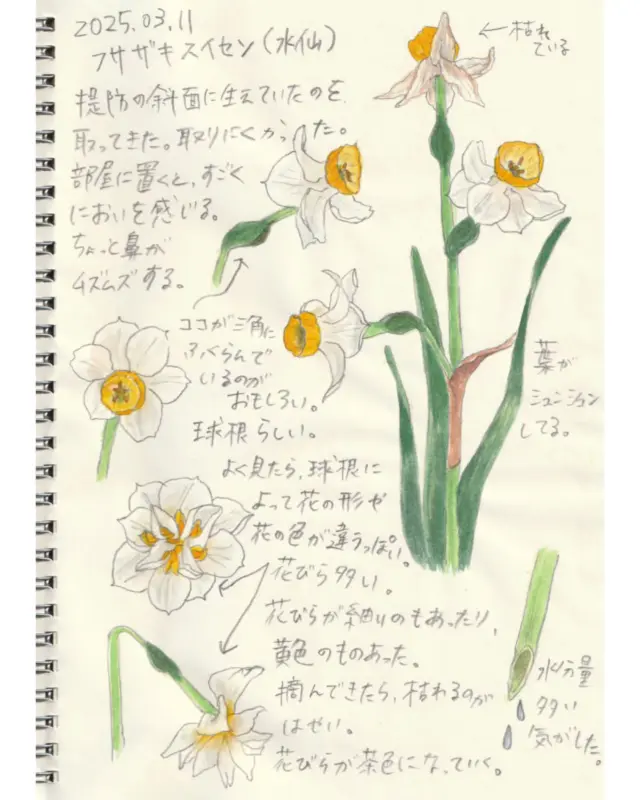 2025.03.11
フサザキスイセン(水仙)
堤防の斜面に生えていたのを
取ってきた。取りにくかった。
部屋に置くと、すごく
においを感じる。
ちょっと鼻が
ムズムズする。
←枯れ
ている
ココが三角に
ふくらんで
いるのが
おもしろい。
球根らしい。
よく見たら、球根に
よって花の形や
花の色が違うっぽい。
葉が
シュンシュン
してる。
花びら多い。
花びらが細いのもあったり、
黄色のものあった。
摘んできたら、枯れるのが
はやい。
花びらが茶色になっていく。
水分量
多い
気がした。